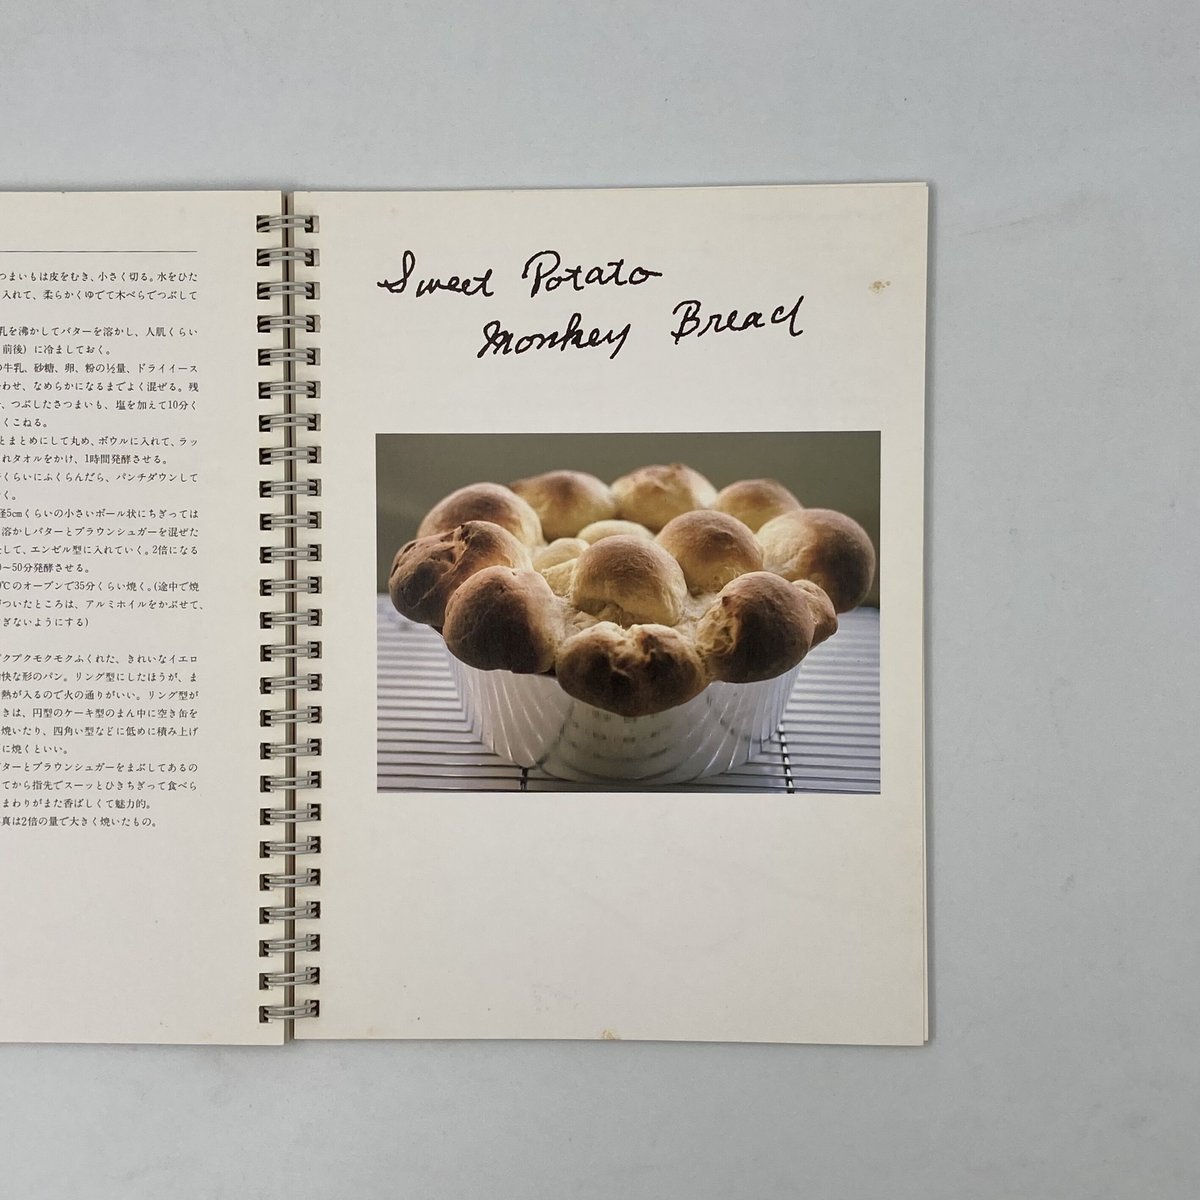 つまいもは皮をむき、小さく切る。水をひた
入れて、柔らかくゆでて木べらでつぶして
乳を沸かしてバターを溶かし、人肌くらい
前後）に冷ましておく。
の牛乳、砂糖、卵、粉の½量、ドライイース
わせ、なめらかになるまでよく混ぜる。残
、つぶしたさつまいも、塩を加えて10分く
くこねる。
とまとめにして丸め、ボウルに入れて、ラッ
れタオルをかけ、1時間発酵させる。
くらいにふくらんだら、パンチダウンして
く。
径5cmくらいの小さいボール状にちぎっては
溶かしバターとブラウンシュガーを混ぜた
して、エンゼル型に入れていく。2倍になる
〜50分発酵させる。
℃のオーブンで35分くらい焼く。(途中で焼
ついたところは、アルミホイルをかぶせて、
ぎないようにする)
プクモクモクふくれた、きれいなイエロ
快な形のパン。リング型にしたほうが、ま
熱が入るので火の通りがいい。リング型が
きは、円型のケーキ型のまん中に空き缶を
焼いたり、四角い型などに低めに積み上げ
に焼くといい。
ターとブラウンシュガーをまぶしてあるの
てから指先でスーッとひきちぎって食べら
まわりがまた香ばしくて魅力的。
真は2倍の量で大きく焼いたもの。
Sweet Potato
Monkey Bread